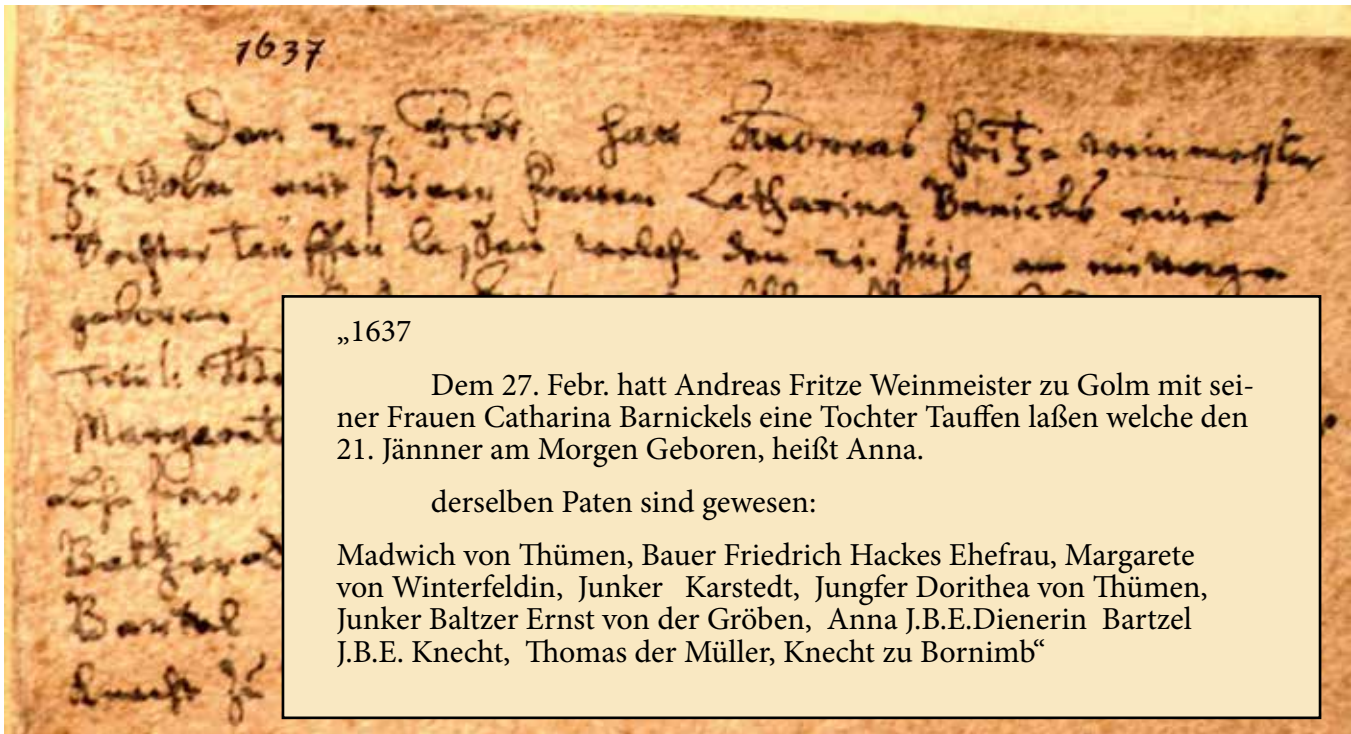 1637
Den 27. Febr. hatt Andreas Fritze weinmeister
zu Golm mit seiner Frauen Catharina Barnickels eine
Tochter Tauffen laßen welche den 21. am morgen
geboren
Margaret
Baltzer
Bartel
Knecht zu
„1637
Dem 27. Febr. hatt Andreas Fritze Weinmeister zu Golm mit sei-
ner Frauen Catharina Barnickels eine Tochter Tauffen laßen welche den
21. Jännner am Morgen Geboren, heißt Anna.
derselben Paten sind gewesen:
Madwich von Thümen, Bauer Friedrich Hackes Ehefrau, Margarete
von Winterfeldin, Junker Karstedt, Jungfer Dorithea von Thümen,
Junker Baltzer Ernst von der Gröben, Anna J.B.E.Dienerin Bartzel
J.B.E. Knecht, Thomas der Müller, Knecht zu Bornimb“